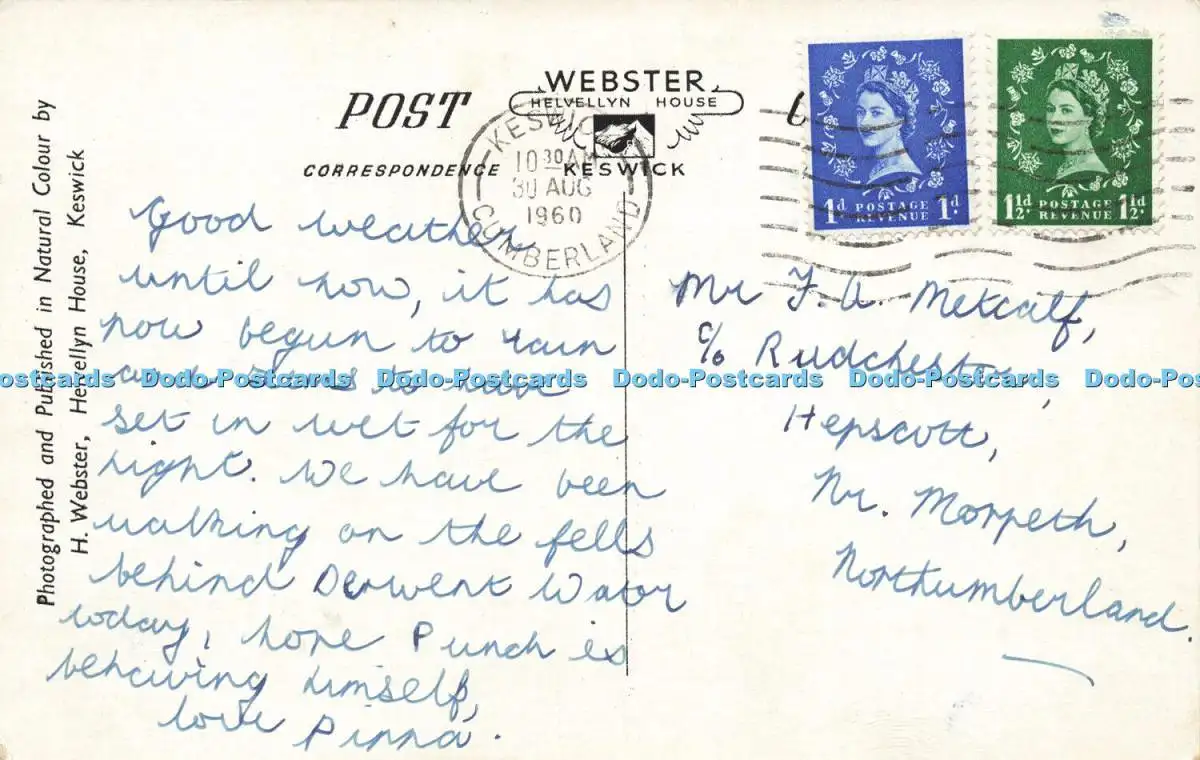 Photographed and Published in Natural Colour by
H. Webster, Helvellyn House, Keswick
POST
CORRESPONDENCE
WEBSTER
HELVELLYN HOUSE
KESWICK
KESWICK
10 30 AM
30 AUG
1960
CUMBERLAND
1d POSTAGE REVENUE 1d
1½d POSTAGE REVENUE 1½d
Good weather
until now, it has
now begun to rain
and seems to have
set in wet for the
night. We have been
walking on the fells
behind Derwent Water
today, hope Punch is
behaving himself,
love
Mr F. A. Metcalf,
c/o Rudchester,
Hepscott,
Nr. Morpeth,
Northumberland.
Dodo-Postcards Dodo-Postcards Dodo-Postcards Dodo-Postcards Dodo-Postcards